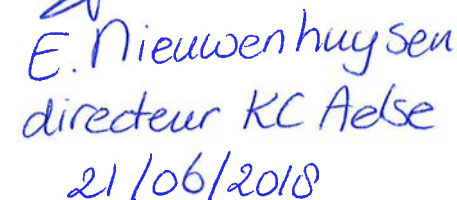 E. Nieuwenhuysen
directeur KC Aelse
21/06/2018